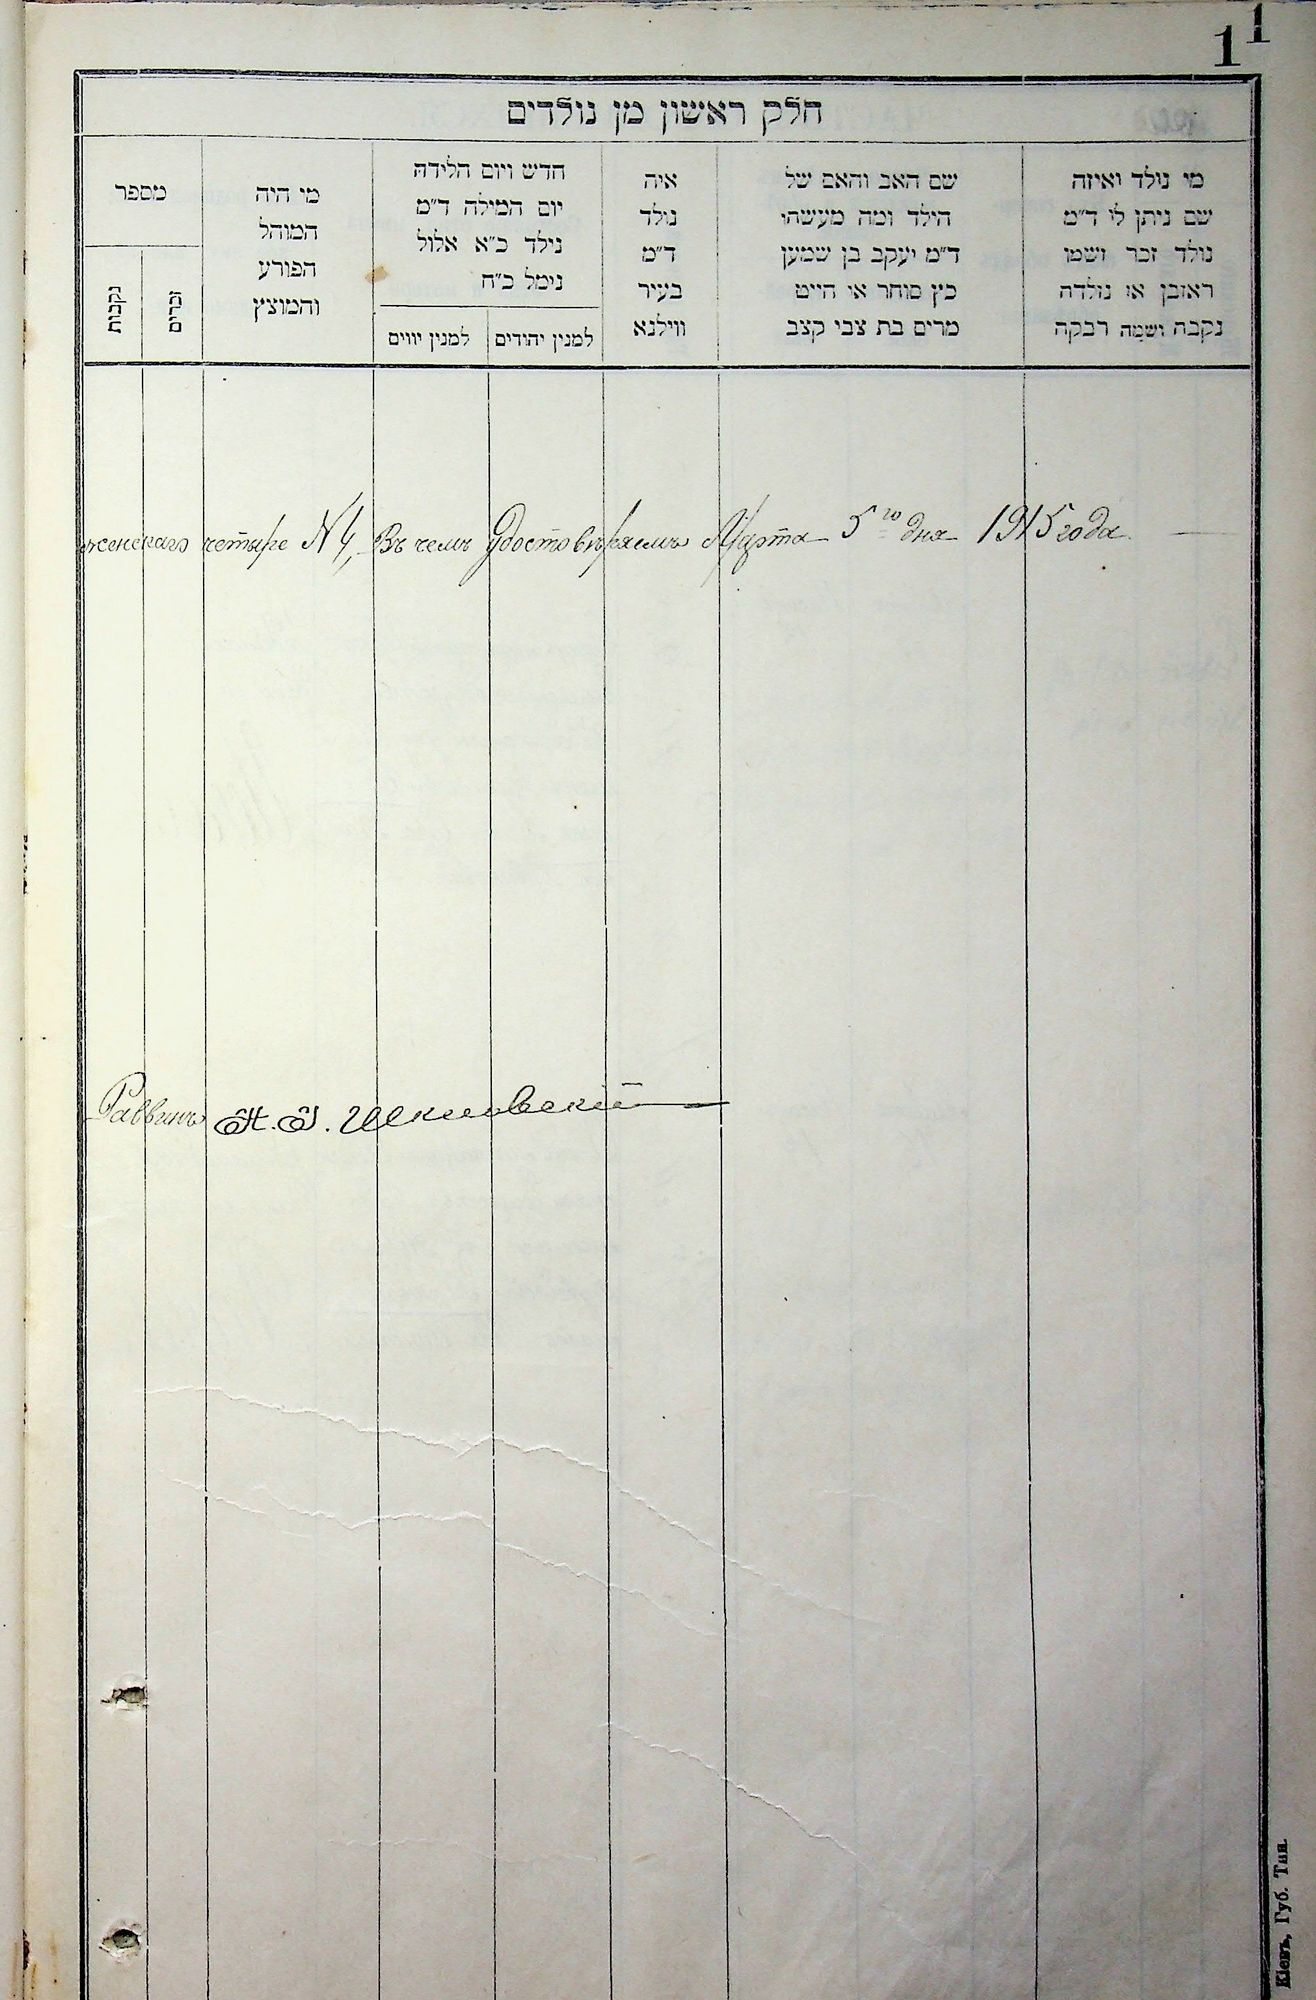 1
1
חלק ראשון מן נולדים
מי נולד ואיזה
שם ניתן לו ד״מ
נולד זכר ושמו
ראובן או נולדה
נקבה ושמה רבקה
שם האב והאם של
הילד ומה מעשהו
ד״מ יעקב בן שמען
כץ סוחר או הייט
מרים בת צבי קצב
איה
נולד
ד״מ
בעיר
ווילנא
חדש ויום הלידה
יום המילה ד״מ
נילד כ״א אלול
נימל כ״ח
למנין יהודים
למנין יווים
מי היה
המוהל
הפורע
והמוצץ
מספר
זכרים
נקבות
женскаго четыре N 4, Въ чемъ удостовѣряемъ Марта 5го дня 1915 года.
Раввинъ
Кіевъ, Губ. Тип.